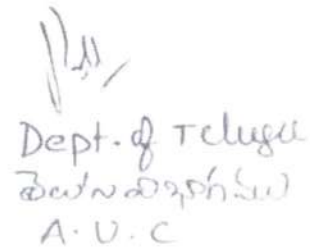 Dept. of Telugu
తెలుగు విభాగము
A.U.C